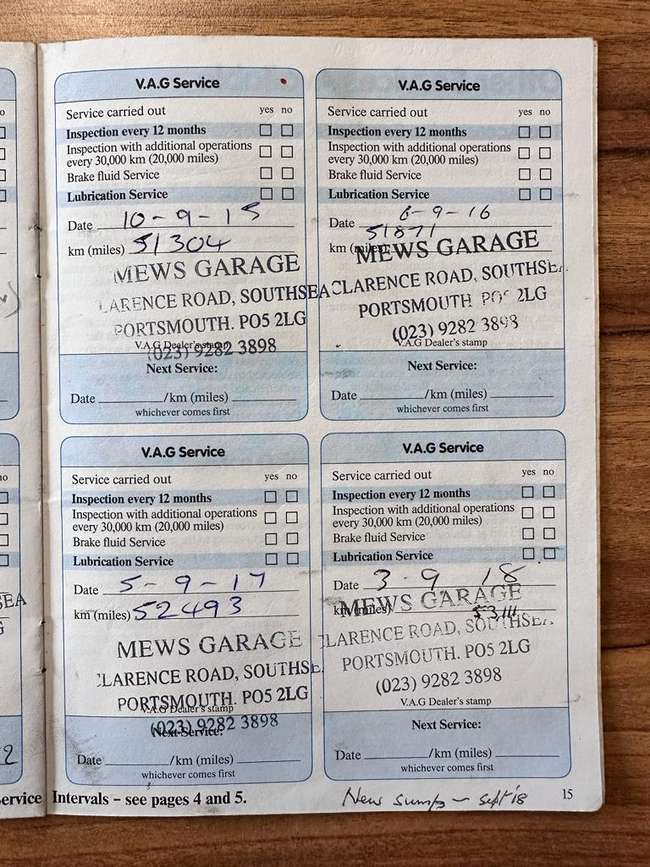 V.A.G Service
Service carried out yes no
Inspection every 12 months
Inspection with additional operations
every 30,000 km (20,000 miles)
Brake fluid Service
Lubrication Service
Date 10-9-15
km (miles) 51304
MEWS GARAGE
LARENCE ROAD, SOUTHSEA
PORTSMOUTH. PO5 2LG
V.A.G Dealer's stamp
(023) 9282 3898
Next Service:
Date /km (miles)
whichever comes first
V.A.G Service
Service carried out yes no
Inspection every 12 months
Inspection with additional operations
every 30,000 km (20,000 miles)
Brake fluid Service
Lubrication Service
Date 6-9-16
51871
km (miles)
MEWS GARAGE
CLARENCE ROAD, SOUTHSEA
PORTSMOUTH PO5 2LG
(023) 9282 3898
V.A.G Dealer's stamp
Next Service:
Date /km (miles)
whichever comes first
V.A.G Service
Service carried out yes no
Inspection every 12 months
Inspection with additional operations
every 30,000 km (20,000 miles)
Brake fluid Service
Lubrication Service
Date 5-9-17
km (miles) 52493
MEWS GARAGE
CLARENCE ROAD, SOUTHSE
PORTSMOUTH. PO5 2LG
V.A.G Dealer's stamp
(023) 9282 3898
Next Service:
Date /km (miles)
whichever comes first
V.A.G Service
Service carried out yes no
Inspection every 12 months
Inspection with additional operations
every 30,000 km (20,000 miles)
Brake fluid Service
Lubrication Service
Date 3-9 18
km (miles) 53111
MEWS GARAGE
CLARENCE ROAD, SOUTHSEA
PORTSMOUTH. PO5 2LG
(023) 9282 3898
V.A.G Dealer's stamp
Next Service:
Date /km (miles)
whichever comes first
ervice Intervals – see pages 4 and 5.
New sump - sept '18
15